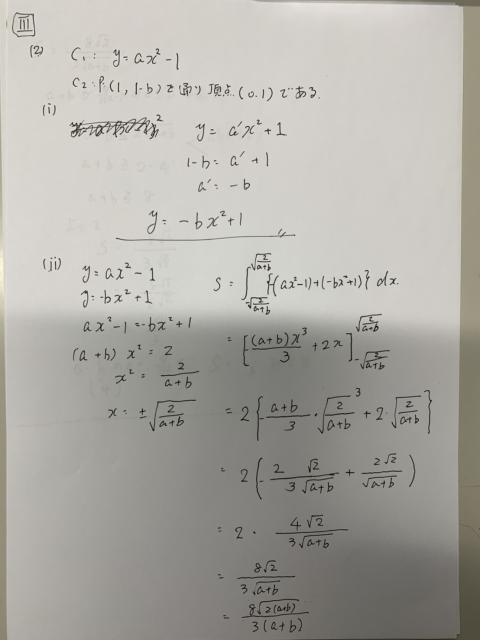 III
(2) C₁: y = ax² - 1
C₂: P(1, 1-b)を通り頂点(0.1)である.
(i)
y = a'x² + 1
1-b = a' + 1
a' = -b
y = -bx² + 1
(ii)
y = ax² - 1
y = -bx² + 1
ax² - 1 = -bx² + 1
(a+b) x² = 2
x² = 2/(a+b)
x = ±√(2/(a+b))
S = ∫_{-√(2/(a+b))}^{√(2/(a+b))} {-(ax²-1)+(-bx²+1)} dx.
= [-(a+b)x³/3 + 2x]_{-√(2/(a+b))}^{√(2/(a+b))}
= 2{-(a+b)/3 · √(2/(a+b))³ + 2·√(2/(a+b))}
= 2(-2√2/(3√(a+b)) + 2√2/√(a+b))
= 2 · 4√2/(3√(a+b))
= 8√2/(3√(a+b))
= 8√(2(a+b))/(3(a+b))